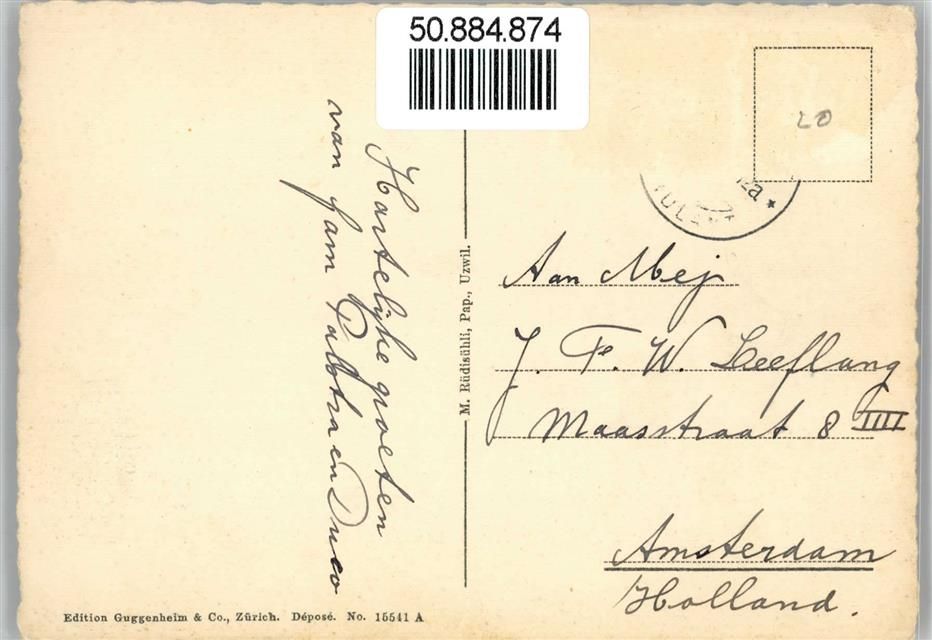 50.884.874
20
Hartelijke groeten
van fam en Duco
M. Rüdisühli, Pap., Uzwil.
Aan Mej
J. F. W. Leeflang
Maasstraat 8 IIII
Amsterdam
Holland.
Edition Guggenheim & Co., Zürich. Déposé. No. 15541 A